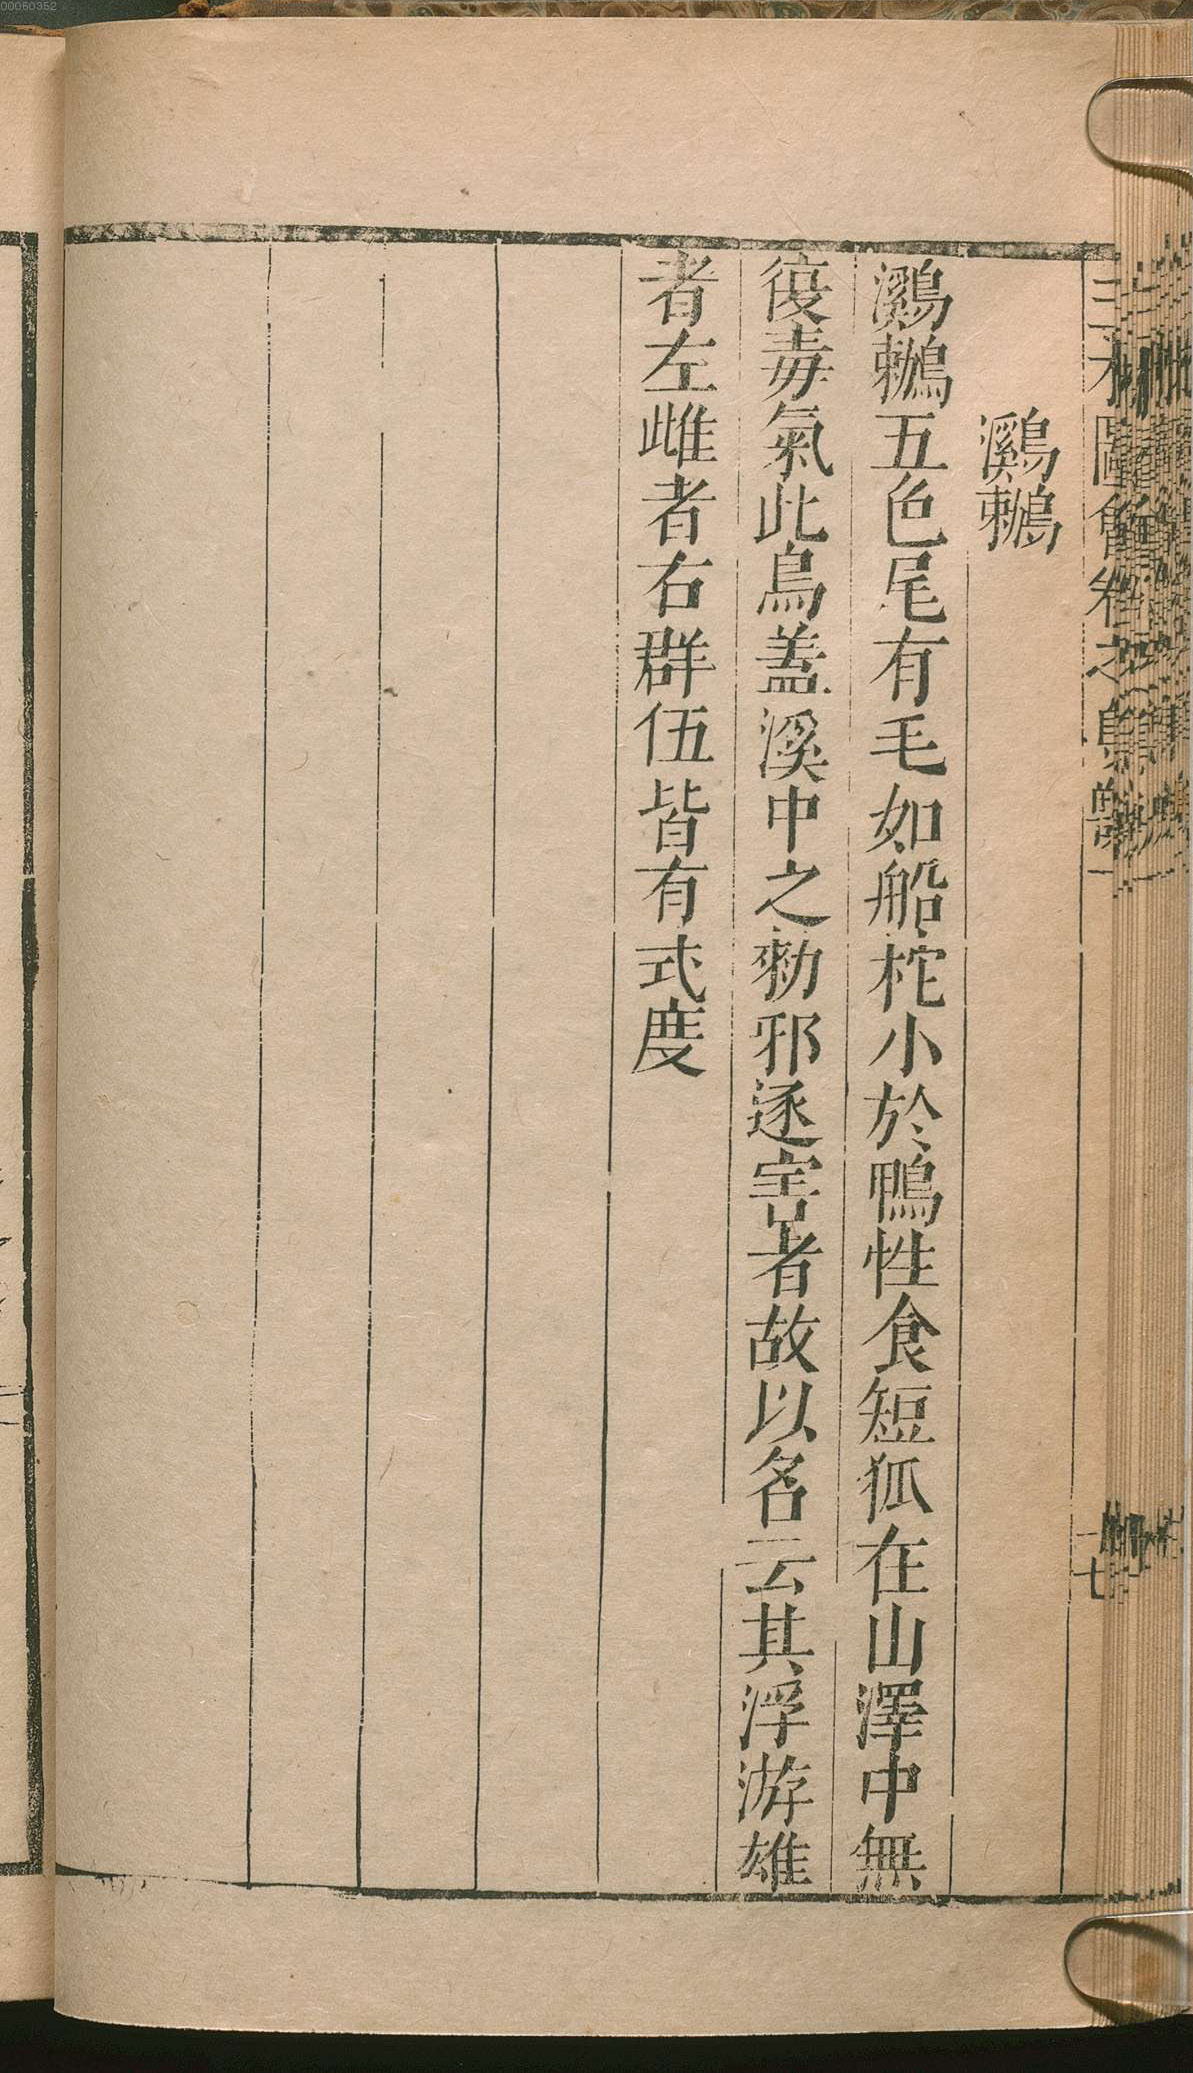 鸂鶒
鸂鶒五色尾有毛如船柁小於鴨性食短狐在山澤中無
復毒氣此鳥蓋溪中之勑邪逐害者故以名云其浮游雄
者左雌者右群伍皆有式度
三才圖會卷之鳥獸一
十七
00060352